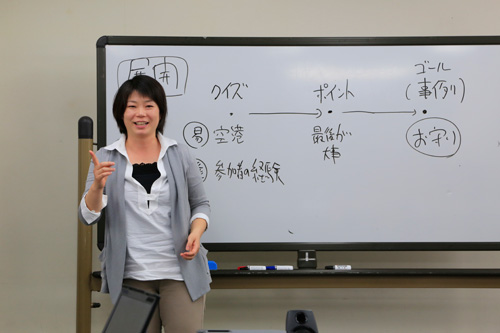 展開
クイズ
ポイント
ゴール
(事例)
易 空港
最後が
大事
お守り
参加者の経験